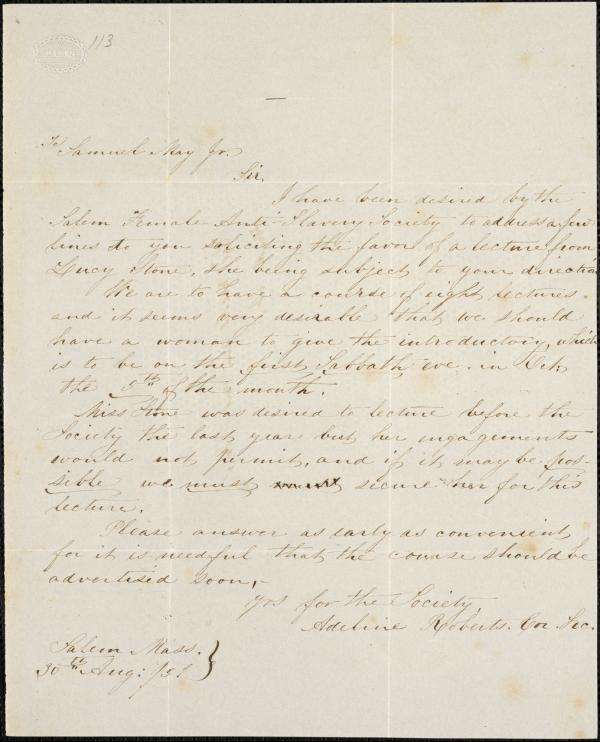 113
To Samuel May Jr.
Sir,
I have been desired by the
Salem Female Anti-Slavery Society to address a few
lines to you soliciting the favor of a lecture from
Lucy Stone, she being subject to your direction
We are to have a course of eight lectures.
and it seems very desirable that we should
have a woman to give the introductory, which
is to be on the first Sabbath eve. in Oct.
the 5th of the month.
Miss Stone was desired to lecture before the
Society the last year but her engagements
would not permit, and if it may be pos-
sible we must secure her for this
lecture.
Please answer as early as convenient
for it is needful that the course should be
advertised soon,-
Yrs for the Society,
Adeline Roberts. Cor Sec.
Salem Mass.
30th Aug: /51